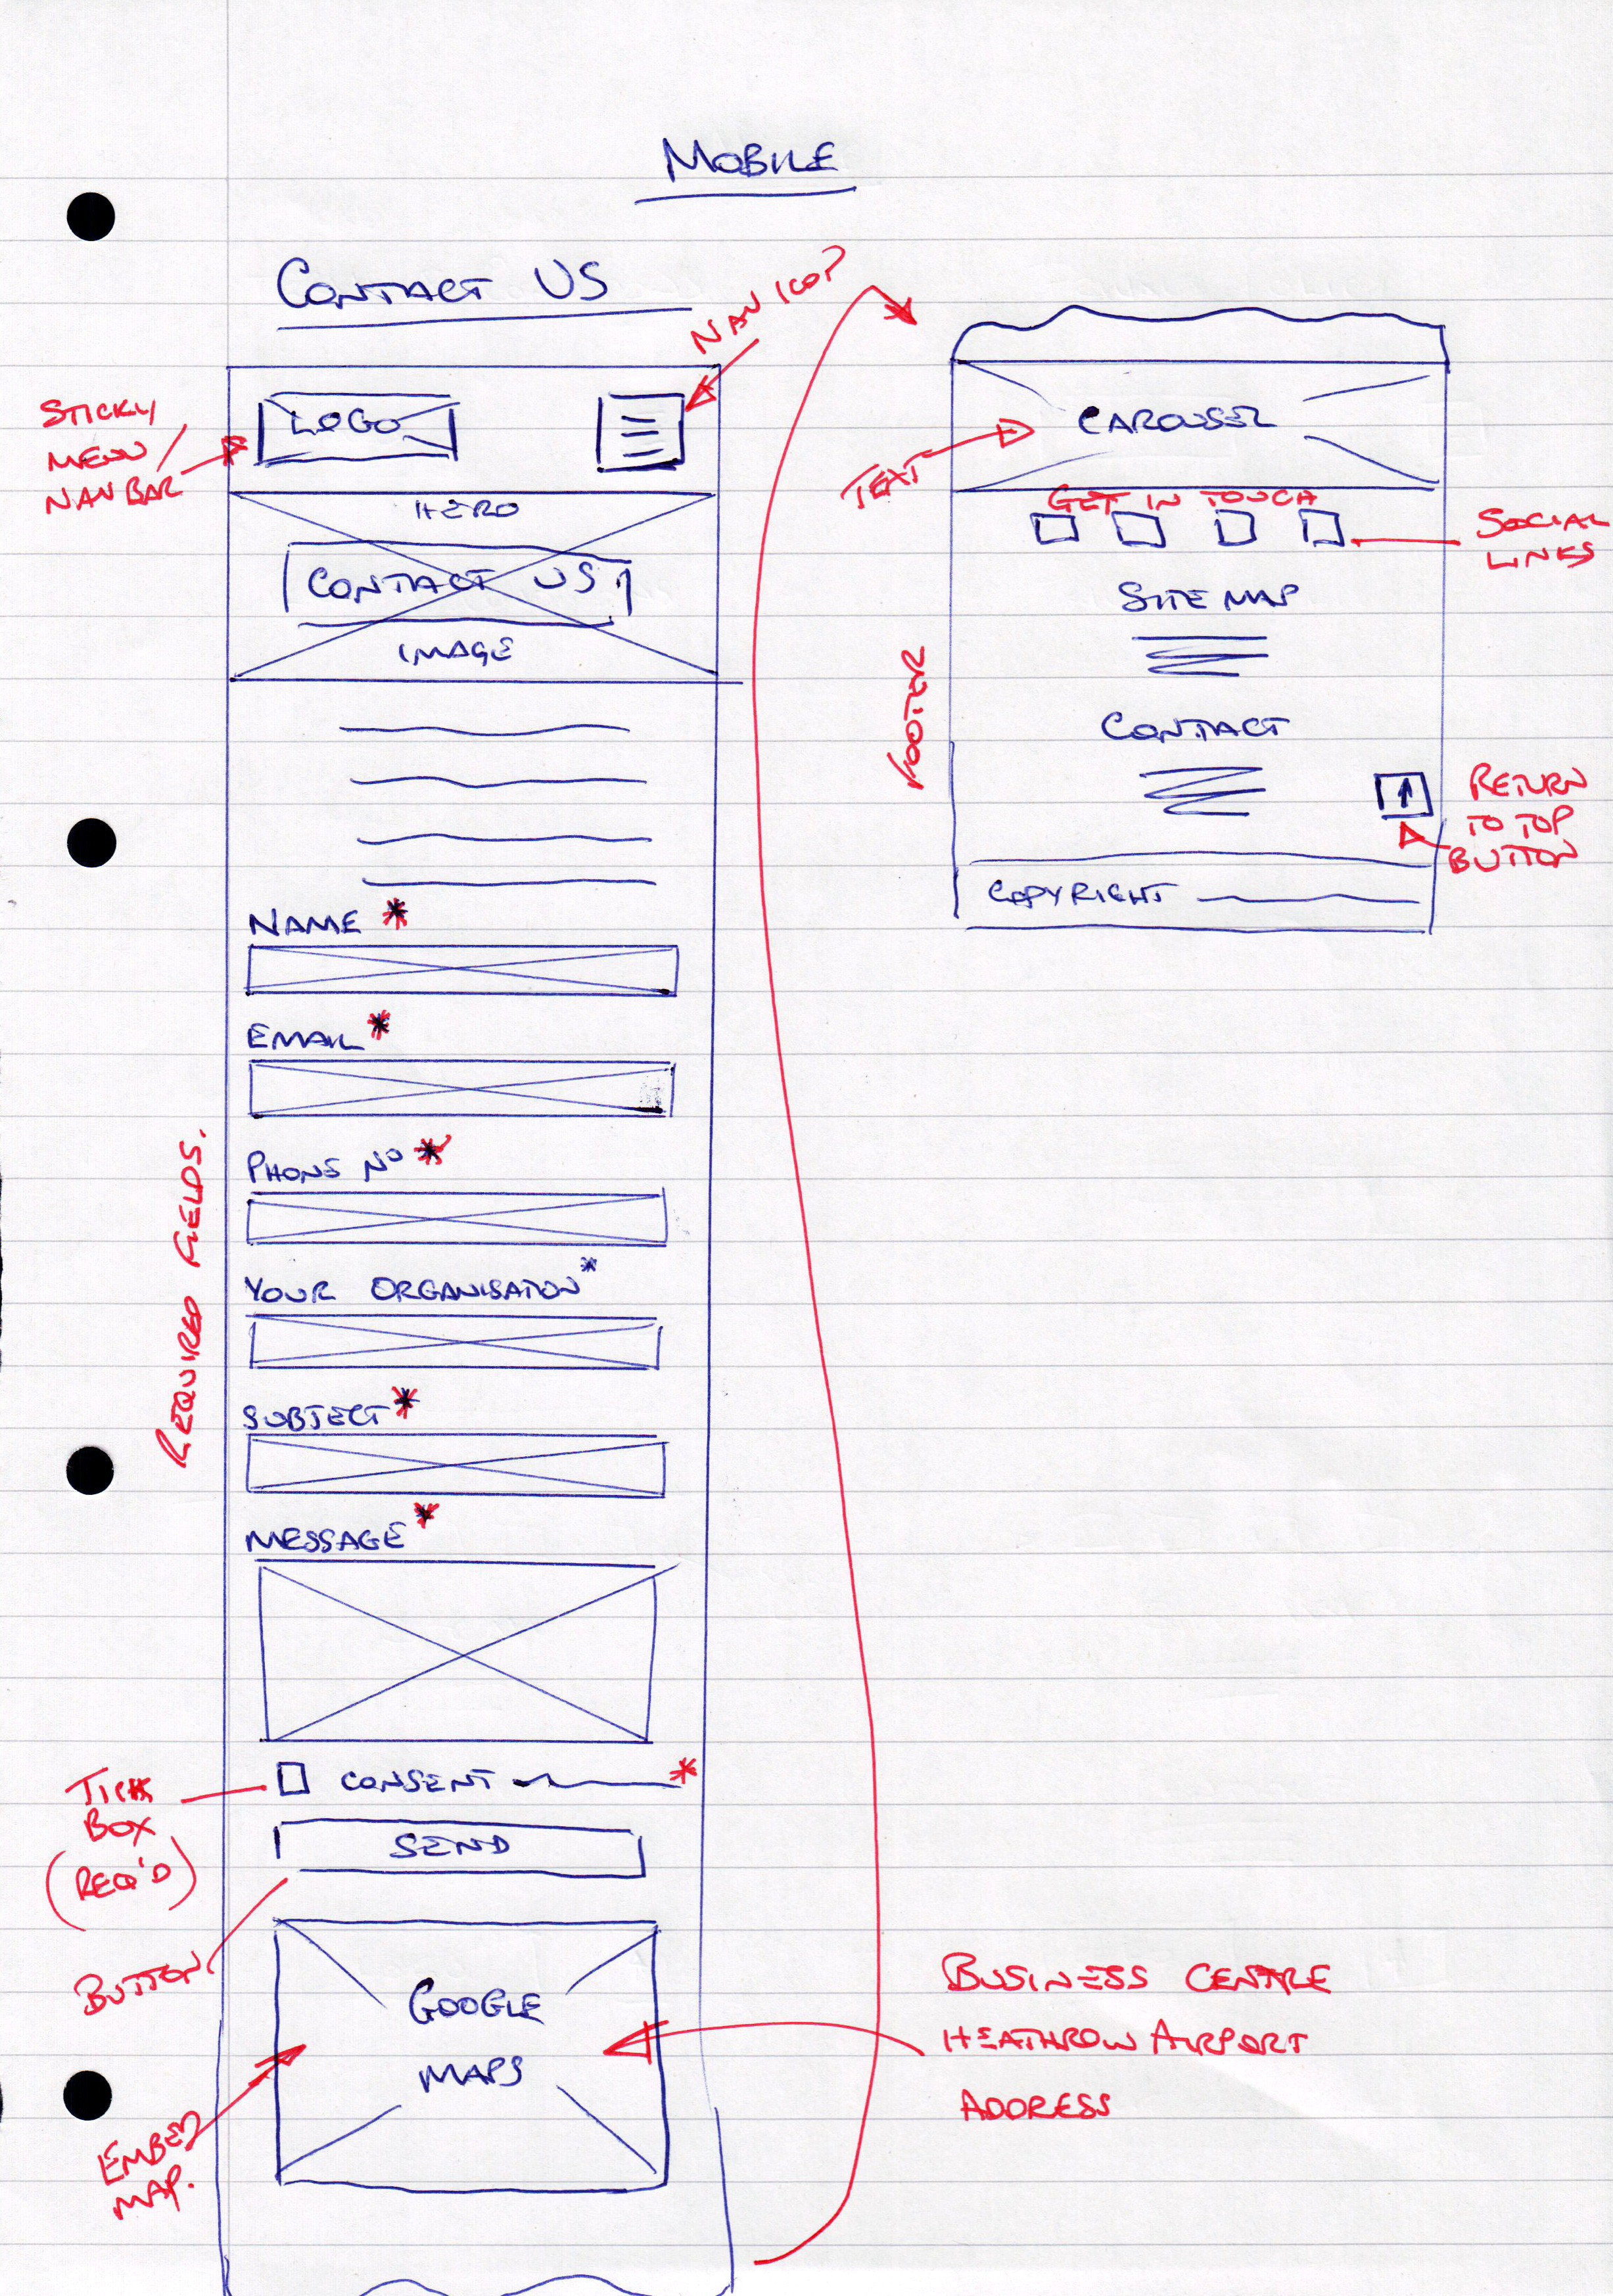 MOBILE
CONTACT US
NAV ICO?
STICKY
MENU /
NAV BAR
LOGO
HERO
CONTACT US
IMAGE
NAME *
EMAIL *
PHONE No *
YOUR ORGANISATION *
SUBJECT *
MESSAGE *
REQUIRED FIELDS.
CONSENT *
TICK
BOX
(REQ'D)
SEND
BUTTON
GOOGLE
MAPS
EMBED
MAP.
BUSINESS CENTRE
HEATHROW AIRPORT
ADDRESS
CAROUSEL
TEXT
GET IN TOUCH
SOCIAL
LINKS
SITE MAP
FOOTER
CONTACT
RETURN
TO TOP
BUTTON
COPYRIGHT